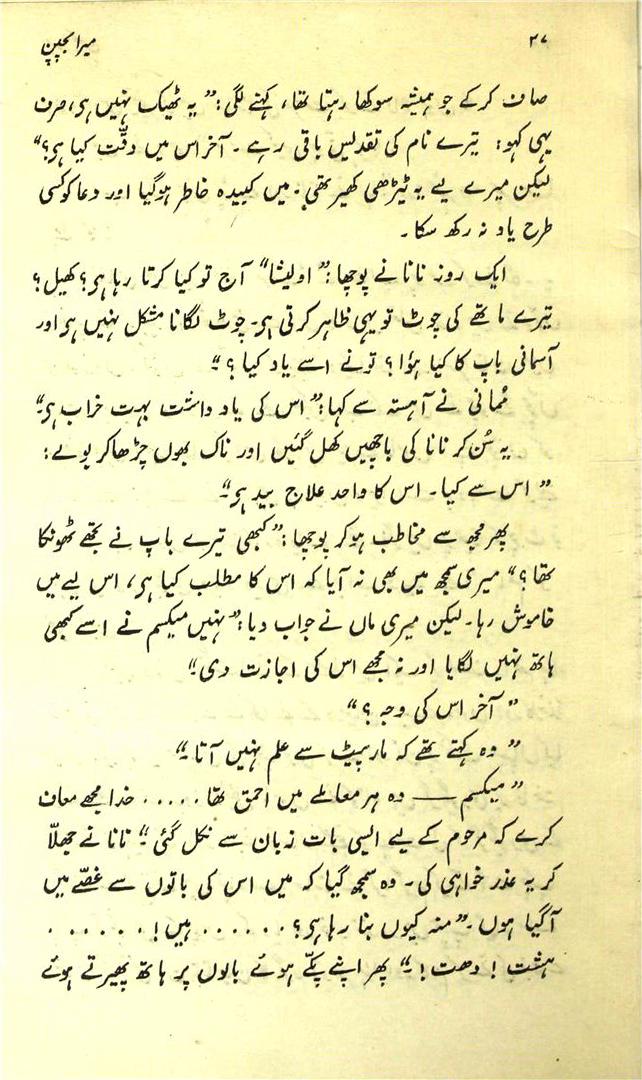 ۳۷ میرا بچپن
صاف کرکے جو ہمیشہ سوکھا رہتا تھا، کہنے لگی: ”یہ ٹھیک نہیں ہی، صرف
یہی کہو: تیرے نام کی تقدیس باقی رہے۔ آخر اس میں دقّت کیا ہی؟“
لیکن میرے لیے یہ ٹیڑھی کھیر تھی۔ میں کبیدہ خاطر ہوگیا اور دعا کو کسی
طرح یاد نہ رکھ سکا۔
ایک روز نانا نے پوچھا: ”اولیشا“ آج تو کیا کرتا رہا ہی؟ کھیل؟
تیرے ماتھے کی چوٹ تو یہی ظاہر کرتی ہی۔ چوٹ لگانا مشکل نہیں ہی اور
آسمانی باپ کا کیا ہؤا؟ تونے اسے یاد کیا؟“
مُمانی نے آہستہ سے کہا: ”اس کی یاد داشت بہت خراب ہی“
یہ سُن کر نانا کی باچھیں کھل گئیں اور ناک بھوں چڑھاکر بولے:
”اس سے کیا۔ اس کا واحد علاج بید ہی“
پھر مجھ سے مخاطب ہوکر پوچھا: ”کبھی تیرے باپ نے تجھے ٹھونکا
تھا؟“ میری سمجھ میں بھی نہ آیا کہ اس کا مطلب کیا ہی، اس لیے میں
خاموش رہا۔ لیکن میری ماں نے جواب دیا: ”نہیں میکسم نے اسے کبھی
ہاتھ نہیں لگایا اور نہ مجھے اس کی اجازت دی“
”آخر اس کی وجہ؟“
”وہ کہتے تھے کہ مارپیٹ سے علم نہیں آتا۔“
”میکسم —— وہ ہر معاملے میں احمق تھا..... خدا مجھے معاف
کرے کہ مرحوم کے لیے ایسی بات زبان سے نکل گئی۔“ نانا نے جھلّا
کر یہ عذر خواہی کی۔ وہ سمجھ گیا کہ میں اس کی باتوں سے غصّے میں
آگیا ہوں۔ ”منہ کیوں بنا رہا ہی؟...... ہیں! ......
ہشت! دھت!۔“ پھر اپنے پکّے ہوئے بالوں پر ہاتھ پھیرتے ہوئے